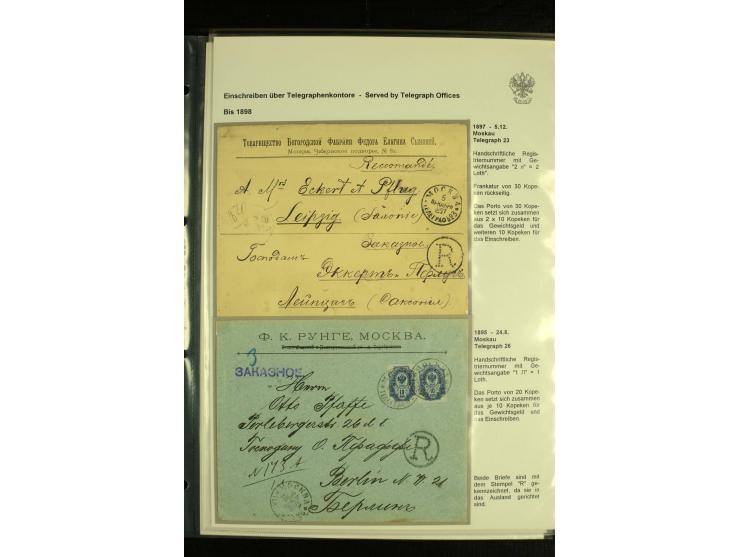 Einschreiben über Telegraphenkontore - Served by Telegraph Offices
Bis 1898
1897 - 5.12.
Moskau
Telegraph 23
Handschriftliche Regis-
triernummer mit Ge-
wichtsangabe "2 л" = 2
Loth".
Frankatur von 30 Kope-
ken rückseitig.
Das Porto von 30 Kope-
ken setzt sich zusammen
aus 2 x 10 Kopeken für
das Gewichtsgeld und
weiteren 10 Kopeken für
das Einschreiben.
Товарищество Богородской Фабрики Федора Елагина Сыновей,
Москва,
Recommandé
A Mrs Eckert & Pflug
Leipzig (Saxonie)
МОСКВА
5
1897
R.
Заказное
Господамъ
Эккертъ и Пфлугъ
Лейпцигъ (Саксонія)
1895 - 24.8.
Moskau
Telegraph 26
Handschriftliche Regis-
triernummer mit Ge-
wichtsangabe "1 Л" = 1
Loth.
Das Porto von 20 Kope-
ken setzt sich zusammen
aus je 10 Kopeken für
das Gewichtsgeld und
das Einschreiben.
Ф. К. РУНГЕ, МОСКВА.
3
ЗАКАЗНОЕ
Herrn
Otto Pfaffe
Perlebergerstr 26
Господину О. Пфаффе
R
Berlin N.W. 21
Берлинъ
МОСКВА
Beide Briefe sind mit
dem Stempel "R" ge-
kennzeichnet, da sie in
das Ausland gerichtet
sind.